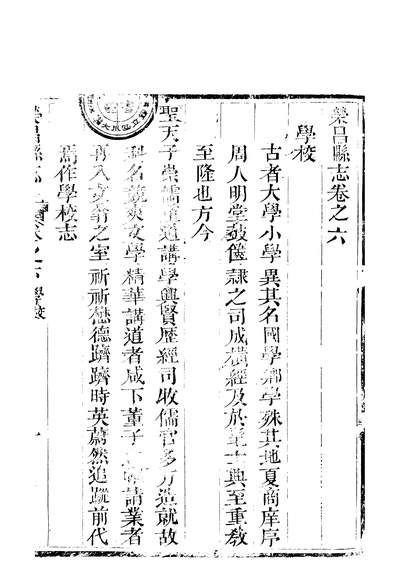 榮昌縣志卷之六
學校
古者大學小學異其名國學鄉學殊其地夏商庠序
周人明堂鼓篋隸之司成橫經及於國士典至重教
至隆也方今
聖天子崇儒重道講學興賢歷經司牧儒官多方造就故
科名競爽文學精華講道者咸下董子之帷請業者
再入文翁之室祈祈懋德蹟蹟時英蔚然追蹤前代
焉作學校志
榮昌縣志 卷之六 學校